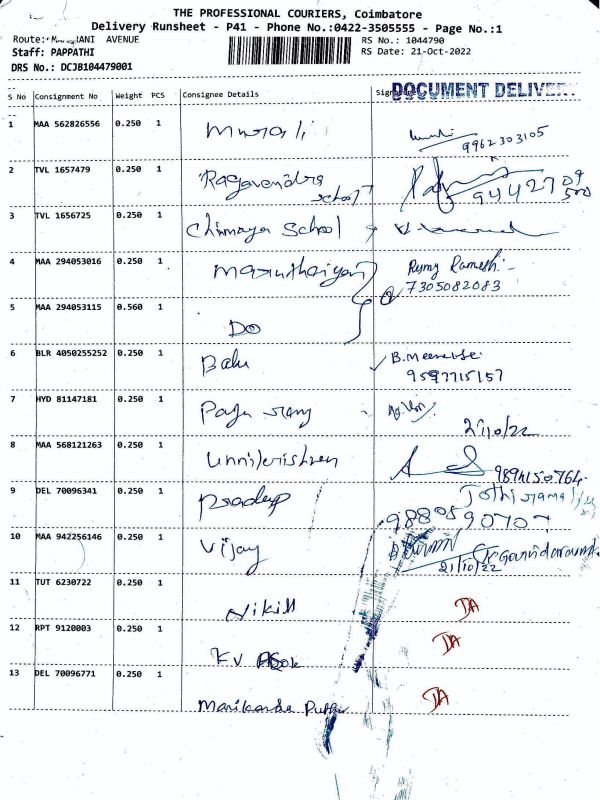 THE PROFESSIONAL COURIERS, Coimbatore
Delivery Runsheet - P41 - Phone No.:0422-3505555 - Page No.:1
Route: AVENUE RS No.: 1044790
Staff: PAPPATHI RS Date: 21-Oct-2022
DRS No.: DCJB104479001
DOCUMENT DELIVERY
S No Consignment No Weight PCS Consignee Details
1 MAA 562826556 0.250 1 Murali
9962303105
2 TVL 1657479 0.250 1 Ragavendra School
94427 09
500
3 TVL 1656725 0.250 1 Chinmaya School
4 MAA 294053016 0.250 1 Maruthaiyan
Ramesh
7305082083
5 MAA 294053115 0.560 1 DO
6 BLR 4050255252 0.250 1 Balu
B.Meena
9597715157
7 HYD 81147181 0.250 1
21/10/22
8 MAA 568121263 0.250 1 Unnikrishnan
9894150764
9 DEL 70096341 0.250 1 Pradeep
9880590707
10 MAA 942256146 0.250 1 Vijay
21/10/22
11 TUT 6230722 0.250 1 Nikill
DA
12 RPT 9120003 0.250 1 E.V Asok
DA
13 DEL 70096771 0.250 1
DA